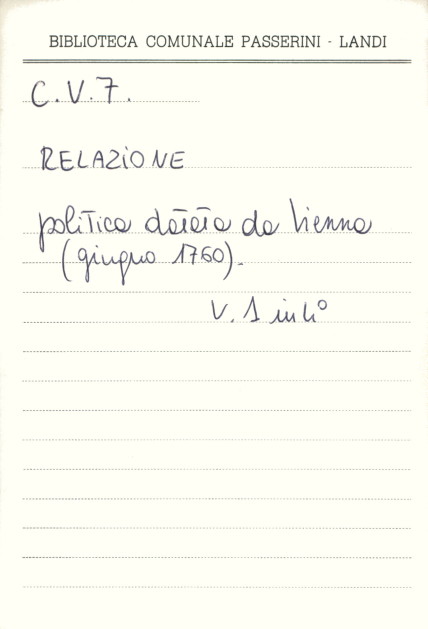 BIBLIOTECA COMUNALE PASSERINI - LANDI
C.V.7.
RELAZIONE
politica datata da Vienna
(giugno 1760).
V. 1 in 4°